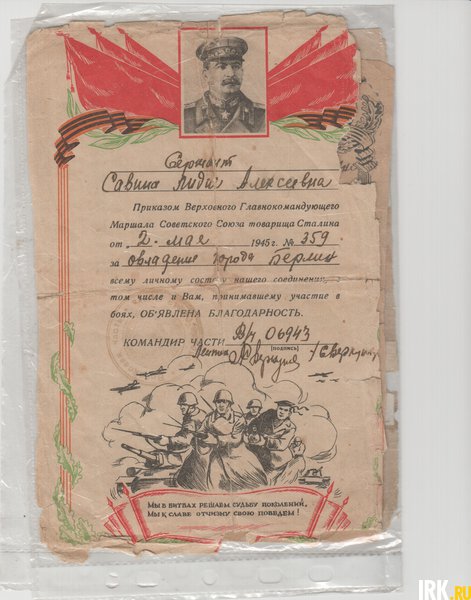 Сержант
Савина Лидия Алексеевна
Приказом Верховного Главнокомандующего
Маршала Советского Союза товарища Сталина
от 2 мая 1945 г. № 359
за овладение города Берлин
всему личному составу нашего соединения, в
том числе и Вам, принимавшему участие в
боях, ОБ'ЯВЛЕНА БЛАГОДАРНОСТЬ.
КОМАНДИР ЧАСТИ В/ч 06943
(подпись)
МЫ В БИТВАХ РЕШАЕМ СУДЬБУ ПОКОЛЕНИЙ,
МЫ К СЛАВЕ ОТЧИЗНУ СВОЮ ПОВЕДЕМ!
IRK.RU